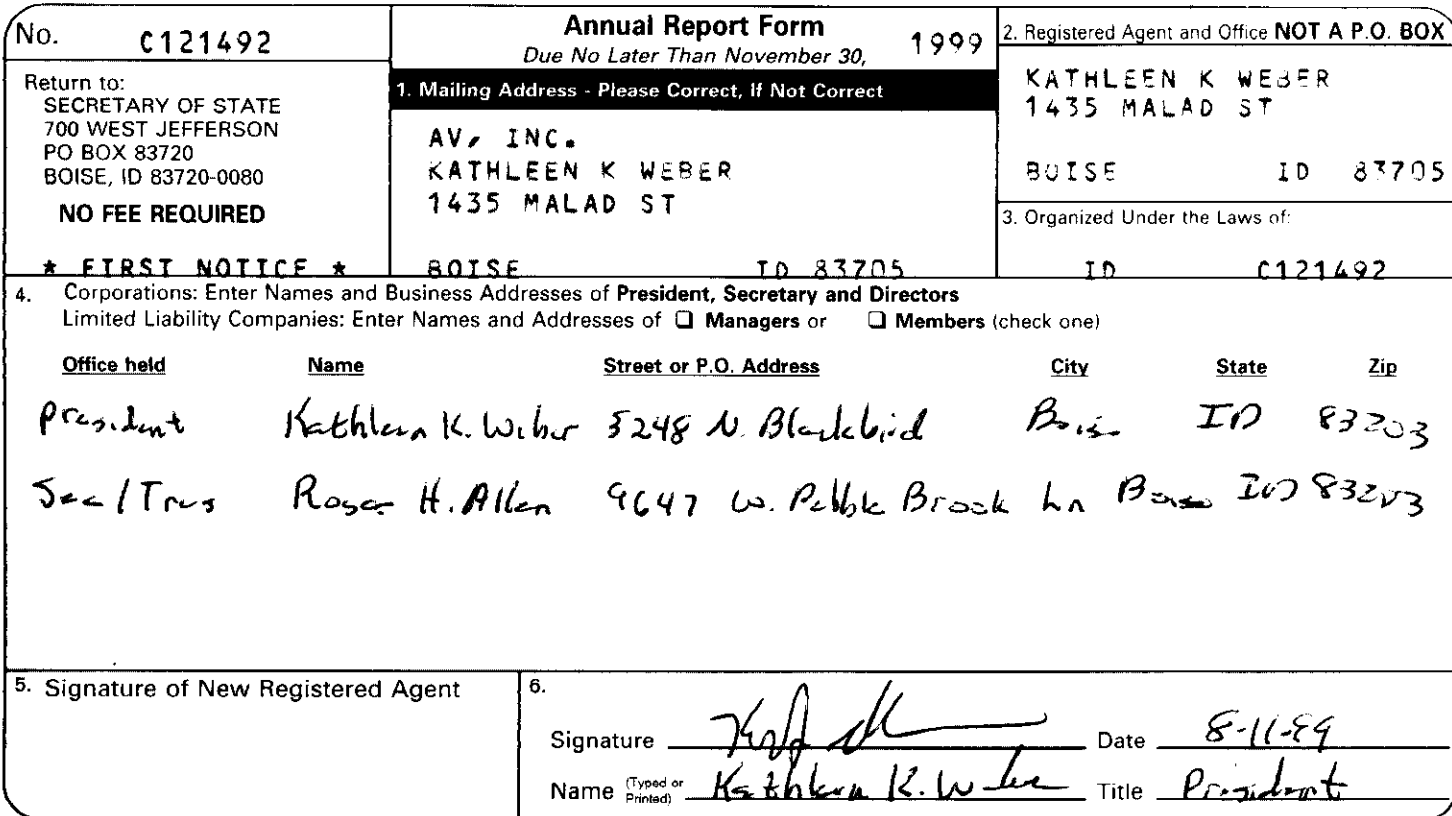 No. C121492
Return to:
SECRETARY OF STATE
700 WEST JEFFERSON
PO BOX 83720
BOISE, ID 83720-0080
NO FEE REQUIRED
* FIRST NOTICE *
Annual Report Form 1999
Due No Later Than November 30,
1. Mailing Address - Please Correct, If Not Correct
AV, INC.
KATHLEEN K WEBER
1435 MALAD ST
BOISE ID 83705
2. Registered Agent and Office NOT A P.O. BOX
KATHLEEN K WEBER
1435 MALAD ST
BOISE ID 83705
3. Organized Under the Laws of:
ID C121492
4. Corporations: Enter Names and Business Addresses of President, Secretary and Directors
Limited Liability Companies: Enter Names and Addresses of ❑ Managers or ❑ Members (check one)
Office held Name Street or P.O. Address City State Zip
President Kathleen K. Weber 5248 N. Blackbird Boise ID 83203
Sec/Tres Roger H. Allen 9647 W. Pebble Brook Ln Boise ID 83203
5. Signature of New Registered Agent
6.
Signature Date
Name (Typed or Printed) Kathleen K. Weber Title President